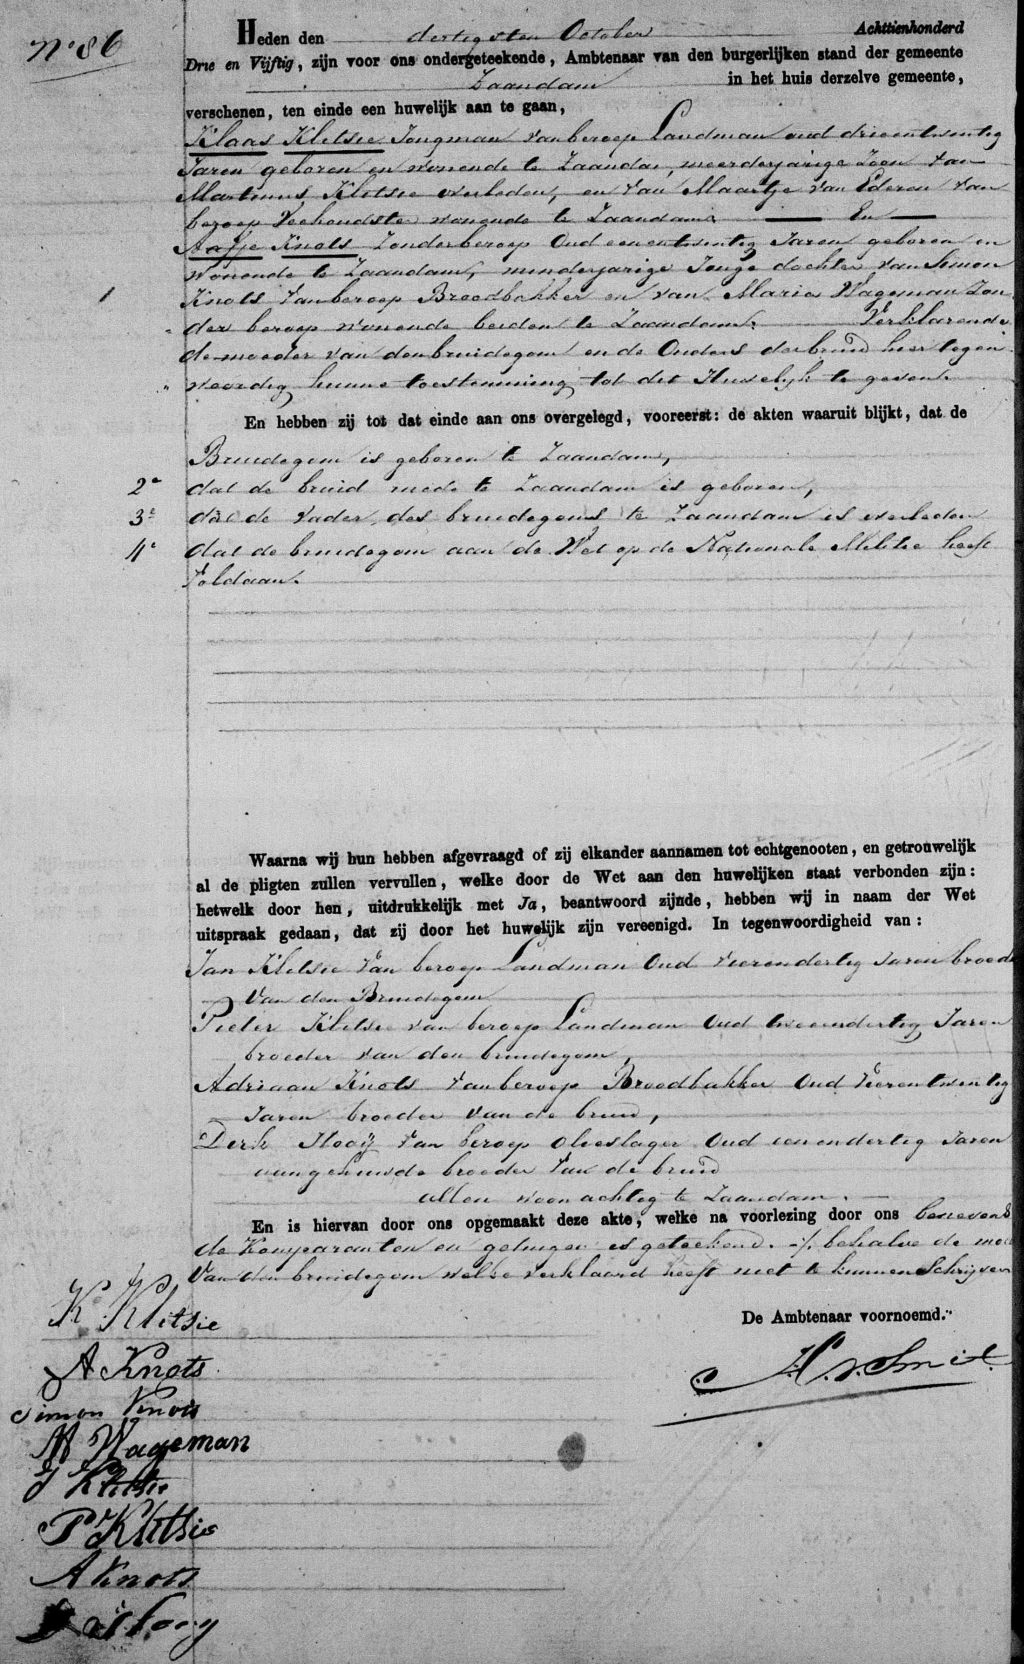 No 86
Heden den dertigsten October Achttienhonderd
Drie en Vijftig, zijn voor ons ondergeteekende, Ambtenaar van den burgerlijken stand der gemeente
Zaandam in het huis derzelve gemeente,
verschenen, ten einde een huwelijk aan te gaan,
Klaas Klitsie Jongman van beroep Landman oud drieentwintig
Jaren geboren en wonende te Zaandam, meerderjarige Zoon van
Martinus Klitsie overleden, en van Maartje van Ederen van
beroep Veehoudster wonende te Zaandam. En
Aafje Knots Zonder beroep Oud eenentwintig Jaren geboren en
wonende te Zaandam, minderjarige Jonge dochter van Simon
1 Knots van beroep Broodbakker en van Maria Wageman Zon
der beroep wonende beiden te Zaandam. Verklarende
de moeder van den bruidegom en de Ouders der bruid hier tegen
woordig hunne toestemming tot dit Huwelijk te geven.
En hebben zij tot dat einde aan ons overgelegd, vooreerst: de akten waaruit blijkt, dat de
Bruidegom is geboren te Zaandam,
2e dat de bruid mede te Zaandam is geboren,
3e dat de vader des bruidegoms te Zaandam is overleden
4e dat de bruidegom aan de Wet op de Nationale Militie heeft
voldaan.
Waarna wij hun hebben afgevraagd of zij elkander aannamen tot echtgenooten, en getrouwelijk
al de pligten zullen vervullen, welke door de Wet aan den huwelijken staat verbonden zijn:
hetwelk door hen, uitdrukkelijk met Ja, beantwoord zijnde, hebben wij in naam der Wet
uitspraak gedaan, dat zij door het huwelijk zijn vereenigd. In tegenwoordigheid van:
Jan Klitsie van beroep Landman Oud vierendertig Jaren broede
van den Bruidegom
Pieter Klitsie van beroep Landman Oud tweeendertig Jaren
broeder van den bruidegom,
Adriaan Knots van beroep Broodbakker Oud vierentwintig
Jaren broeder van de bruid,
Derk Hooij van beroep olieslager Oud eenendertig Jaren
aangehuwde broeder van de bruid
allen woonachtig te Zaandam.
En is hiervan door ons opgemaakt deze akte, welke na voorlezing door ons benevens
de Komparanten en getuigen is geteekend. behalve de moe
van den bruidegom welke verklaard heeft niet te kunnen Schrijven
De Ambtenaar voornoemd.
K Klitsie
A Knots
Simon Knots
M Wageman
J Klitsie
P Klitsie
A Knots